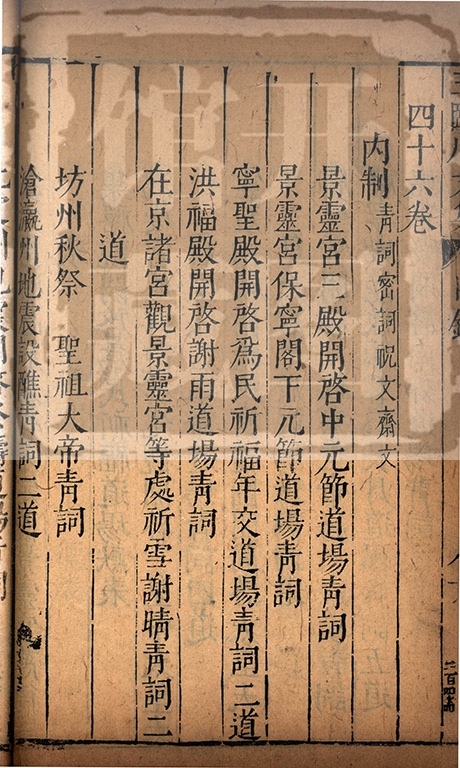 四十六卷
内制青詞密詞祝文齋文
景靈宮三殿開啓中元節道場青詞
景靈宮保寧閣下元節道場青詞
寧聖殿開啓爲民祈福年交道場青詞二道
洪福殿開啓謝雨道場青詞
在京諸宮觀景靈宮等處祈雪謝晴青詞二
道
坊州秋祭 聖祖大帝青詞
滄瀛州地震設醮青詞二道